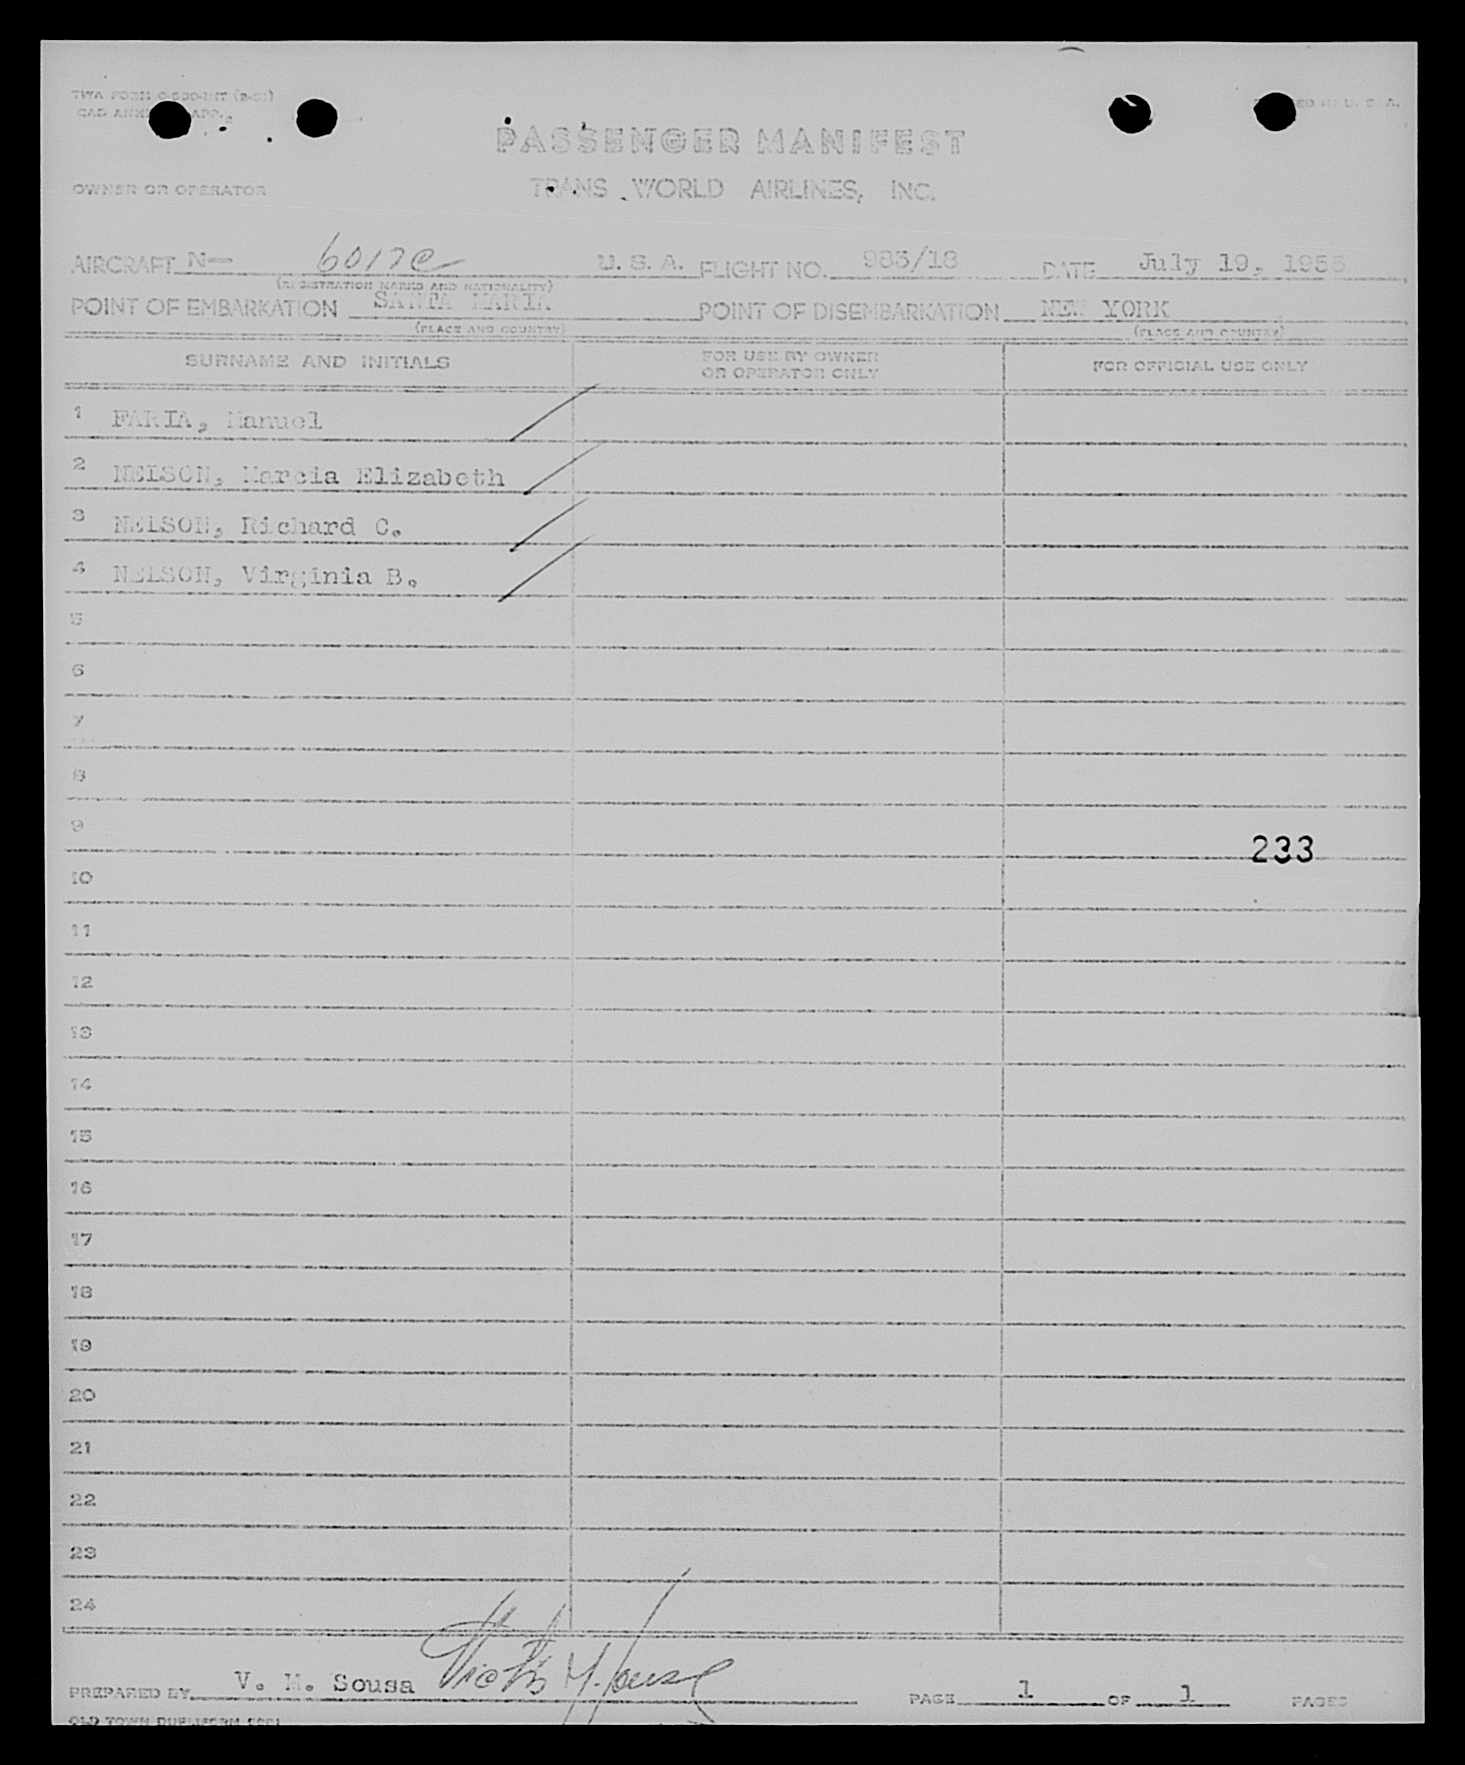 TWA FORM
PASSENGER MANIFEST
OWNER OR OPERATOR TRANS WORLD AIRLINES, INC.
AIRCRAFT N- 6017C U. S. A. FLIGHT NO. 983/18 DATE July 19, 1955
(REGISTRATION MARKS AND NATIONALITY)
POINT OF EMBARKATION SANTA MARIA POINT OF DISEMBARKATION NEW YORK
(PLACE AND COUNTRY) (PLACE AND COUNTRY)
SURNAME AND INITIALS FOR USE BY OWNER OR OPERATOR ONLY FOR OFFICIAL USE ONLY
1 FARIA, Manuel
2 NELSON, Marcia Elizabeth
3 NELSON, Richard C.
4 NELSON, Virginia B.
5
6
7
8
9 233
10
11
12
13
14
15
16
17
18
19
20
21
22
23
24
PREPARED BY V. M. Sousa Victor M. Sousa PAGE 1 OF 1 PAGES
OLD TOWN DUPLIFORM